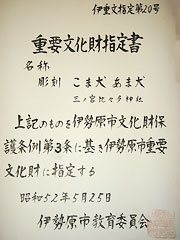 伊重文指定第20号
重要文化財指定書
名称
彫刻 こま犬 あま犬
三ノ宮比々多神社
上記のものを伊勢原市文化財保
護条例第3条に基き伊勢原市重要
文化財に指定する
昭和52年5月25日
伊勢原市教育委員会